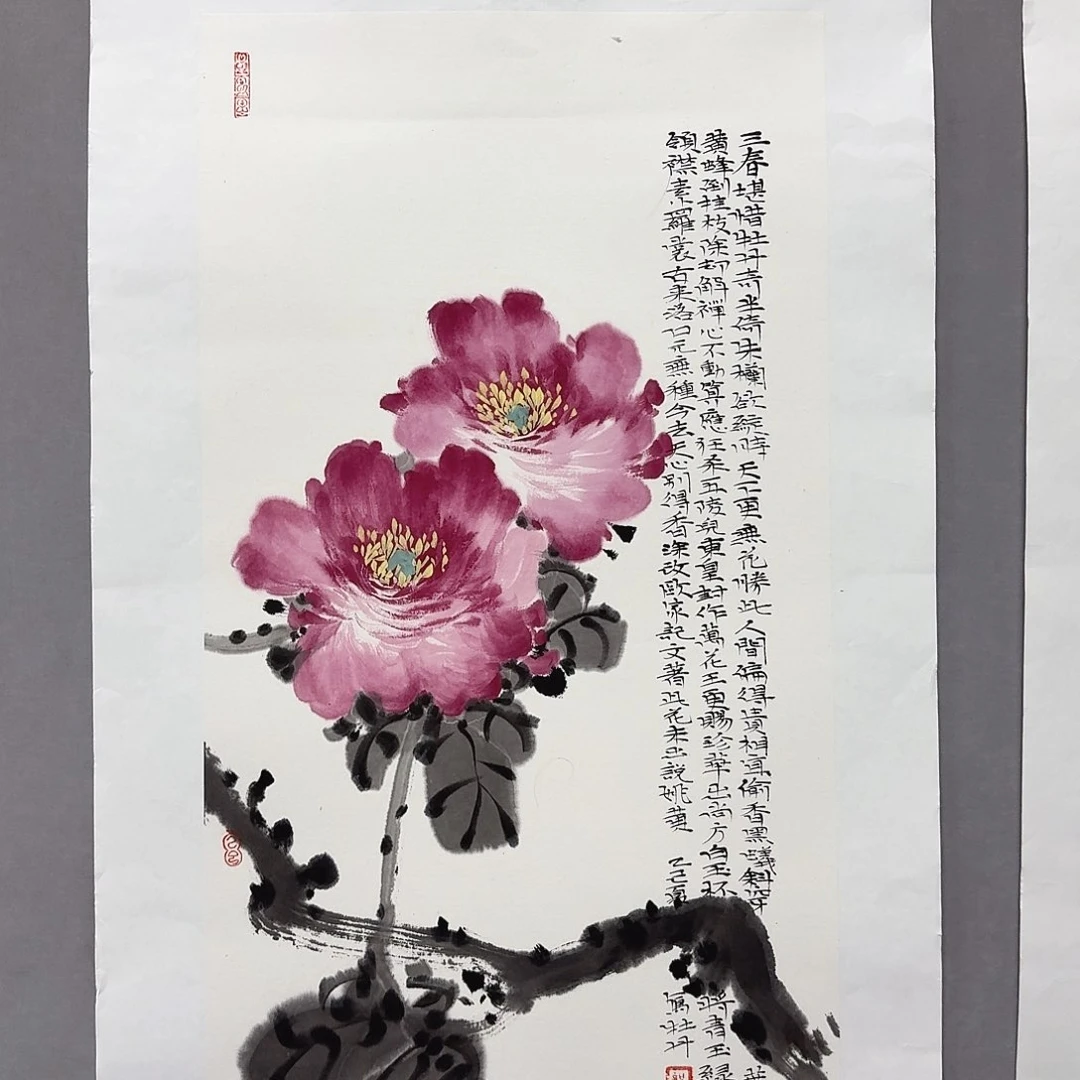 三春堪惜牡丹奇半倚朱欄欲綻時天下更無花勝此人間偏得貴相宜偷香黑蟻斜穿葉
黃蜂倒挂枝除却解禪心不動算應狂杀五陵兒東皇封作萬花王更賜珍華出尚方白玉杯將青玉緑
領襟素羅裳古来洛口元無種今去天心別得香深改歐家記文著此花未出説姚黄 乙巳夏寫牡丹